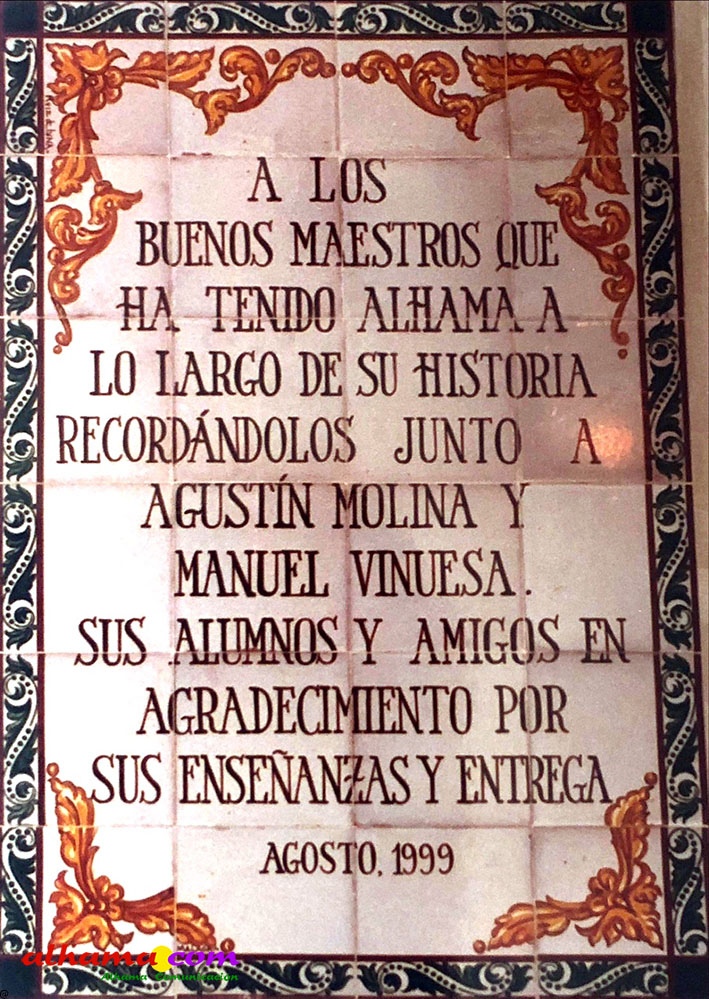 A LOS
BUENOS MAESTROS QUE
HA TENIDO ALHAMA A
LO LARGO DE SU HISTORIA
RECORDÁNDOLOS JUNTO A
AGUSTÍN MOLINA Y
MANUEL VINUESA.
SUS ALUMNOS Y AMIGOS EN
AGRADECIMIENTO POR
SUS ENSEÑANZAS Y ENTREGA
AGOSTO, 1999
alhama.com
Alhama Comunicación